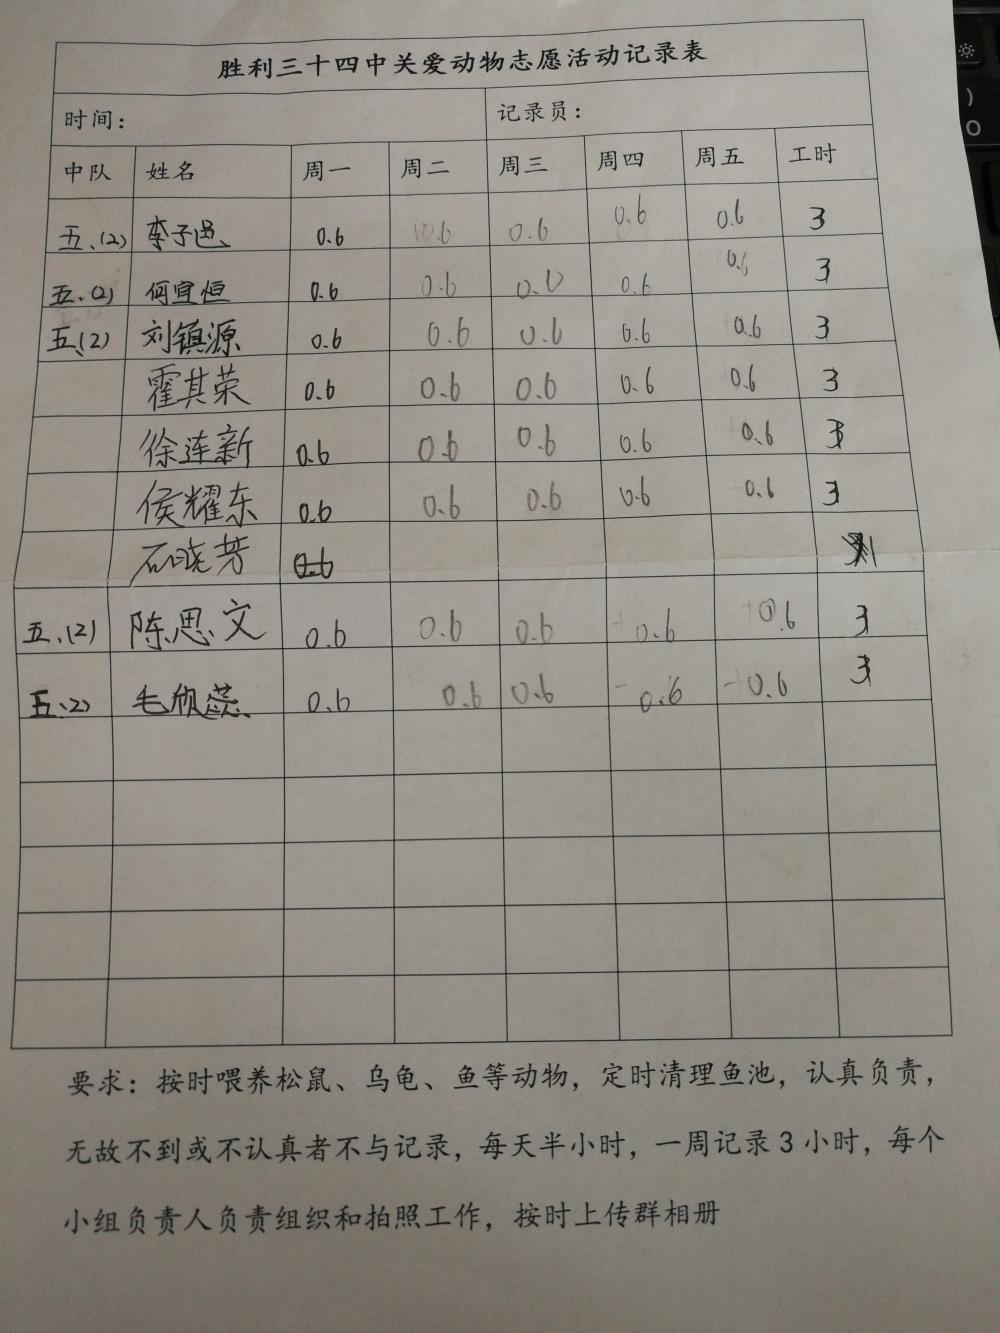 胜利三十四中关爱动物志愿活动记录表
时间： 记录员：
中队 姓名 周一 周二 周三 周四 周五 工时
五、(2) 李子 0.6 0.6 0.6 0.6 0.6 3
五、(2) 何宜恒 0.6 0.6 0.6 0.6 3
五、(2) 刘镇源 0.6 0.6 0.6 0.6 0.6 3
霍其荣 0.6 0.6 0.6 0.6 0.6 3
徐连新 0.6 0.6 0.6 0.6 0.6 3
侯耀东 0.6 0.6 0.6 0.6 0.6 3
石晓芳 0.6
五、(2) 陈思文 0.6 0.6 0.6 0.6 0.6 3
五、(2) 毛欣蕊 0.6 0.6 0.6 0.6 0.6 3
要求：按时喂养松鼠、乌龟、鱼等动物，定时清理鱼池，认真负责，
无故不到或不认真者不与记录，每天半小时，一周记录 3 小时，每个
小组负责人负责组织和拍照工作，按时上传群相册